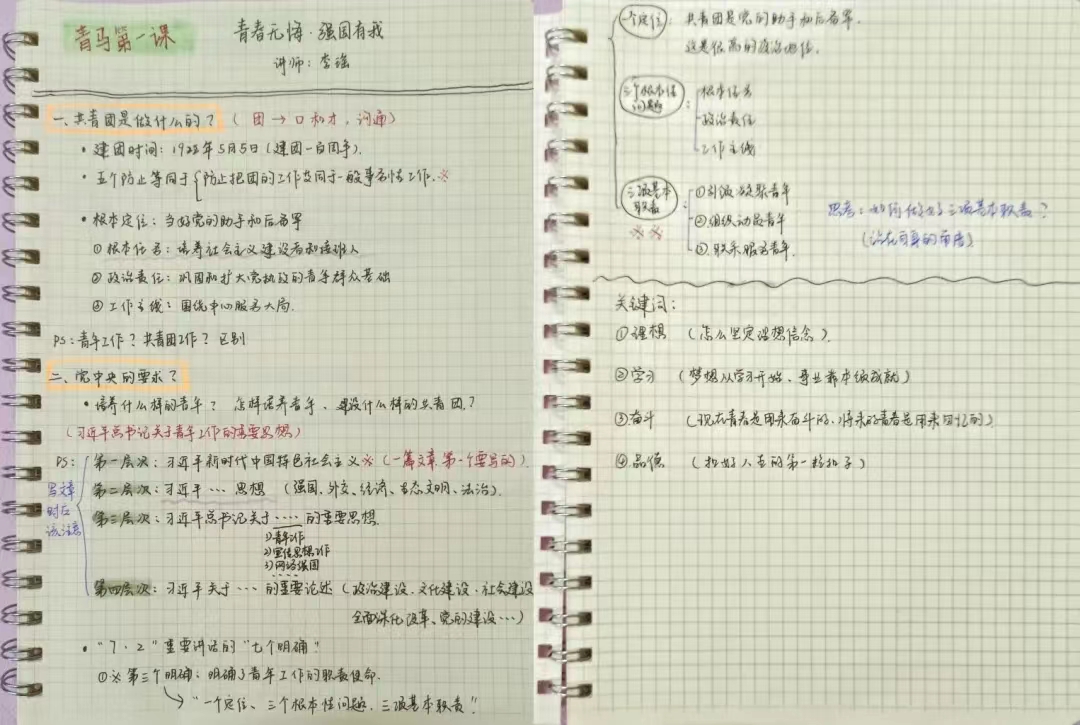 青马第一课
青春无悔·强国有我
讲师：李瑶
一、共青团是做什么的？（团→口和才，沟通）
• 建团时间：1922年5月5日（建团一百周年）.
• 五个防止等同于{防止把团的工作等同于一般事务性工作.※
• 根本定位：当好党的助手和后备军
①根本任务：培养社会主义建设者和接班人
②政治责任：巩固和扩大党执政的青年群众基础
③工作主线：围绕中心服务大局.
PS：青年工作？共青团工作？区别
二、党中央的要求？
• 培养什么样的青年？怎样培养青年、建设什么样的共青团？
（习近平总书记关于青年工作的重要思想）
PS：
写文章
时应
该注意
第一层次：习近平新时代中国特色社会主义※（一篇文章第一个要写的）.
第二层次：习近平…思想（强国、外交、经济、生态文明、法治）.
第三层次：习近平总书记关于……的重要思想.
1）青年工作
2）宣传思想工作
3）网络强国
……
第四层次：习近平关于……的重要论述（政治建设、文化建设、社会建设
全面深化改革、党的建设…）
• “7·2”重要讲话的“七个明确”
①※第三个明确：明确了青年工作的职责使命.
→“一个定位、三个根本性问题、三项基本职责”
一个定位：共青团是党的助手和后备军.
这是很高的政治地位.
三个根本性
问题：
根本任务
政治责任
工作主线
三项基本
职责：
※※
①引领凝聚青年
②组织动员青年
③联系服务青年.
思考：如何做好三项基本职责？
（站在自身的角度）
关键词：
①理想（怎么坚定理想信念）.
②学习（梦想从学习开始、事业靠本领成就）
③奋斗（现在青春是用来奋斗的，将来的青春是用来回忆的）
④品德（扣好人生的第一粒扣子）